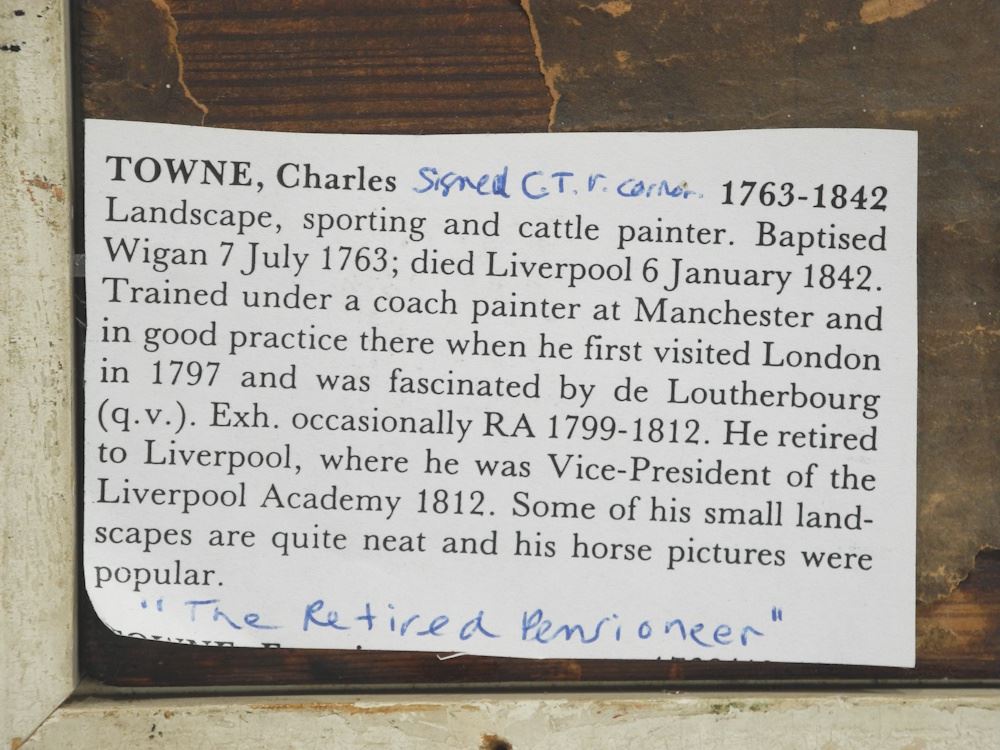 TOWNE, Charles Signed C.T. r. corner. 1763-1842
Landscape, sporting and cattle painter. Baptised
Wigan 7 July 1763; died Liverpool 6 January 1842.
Trained under a coach painter at Manchester and
in good practice there when he first visited London
in 1797 and was fascinated by de Loutherbourg
(q.v.). Exh. occasionally RA 1799-1812. He retired
to Liverpool, where he was Vice-President of the
Liverpool Academy 1812. Some of his small land-
scapes are quite neat and his horse pictures were
popular.
"The Retired Pensioneer"
TOWNE,